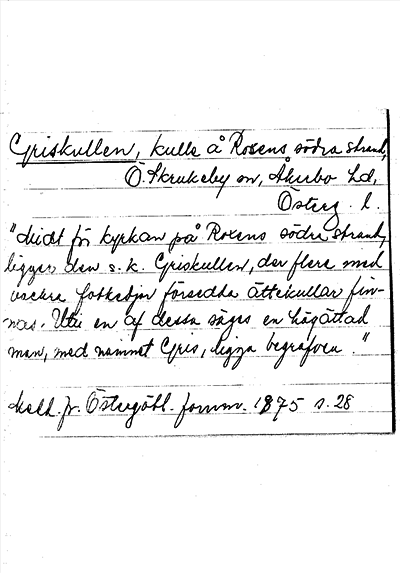 Griskullen, kulle å Roxens södra strand,
Ö. Skrukeby sn, Åkerbo hd,
Österg. l.
"Midt för kyrkan på Roxens södra strand,
ligger den s.k. Griskullen, der flere med
vackra fotkedjor försedda ättekullar fin-
nas. Uti en af dessa säges en högättad
man, med namnet Gris, ligga begrafven."
Medd. fr. Östergötl. fornm. 1875 s. 28